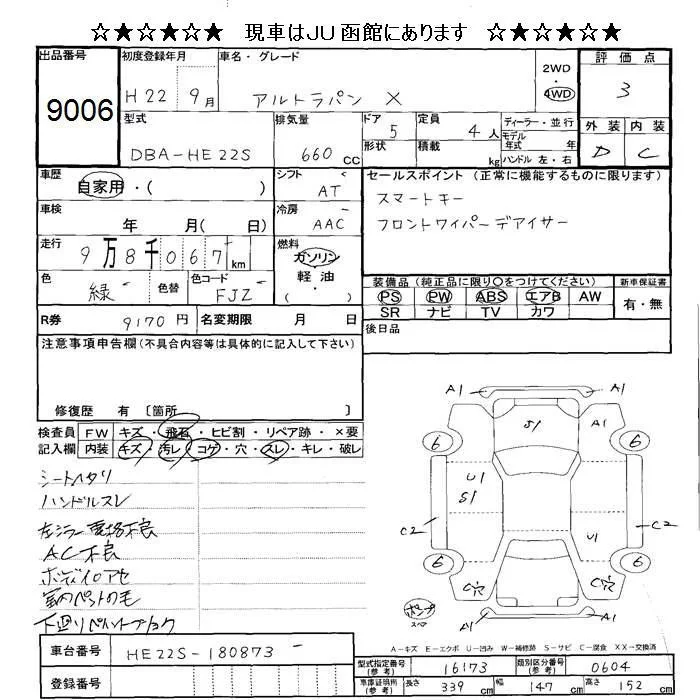 ☆★☆★☆ 現車はJU函館にあります ☆★☆★☆
出品番号
9006
初度登録年月
H22 9月
車名・グレード
アルトラパン X
2WD
4WD
評価点
3
型式
DBA-HE22S
排気量
660 CC
ドア
5
形状
定員
4人
積載
kg
ディーラー・並行
モデル年式 年式
ハンドル 左・右
外装 内装
D C
車歴
自家用・( )
シフト
AT
セールスポイント (正常に機能するものに限ります)
スマートキー
フロントワイパーデアイサー
車検
年 月( 日)
冷房
AAC
走行
9万8千067km
燃料
ガソリン
軽油
・
色
緑
色替
色コード
FJZ
装備品(純正品に限り〇をつけてください)
新車保証書
PS PW ABS エアB AW
SR ナビ TV カワ
有・無
R券
9170円
名変期限 月 日
後日品
注意事項申告欄(不具合内容等は具体的に記入して下さい)
修復歴 有 〔箇所 〕
検査員記入欄
FW キズ・飛石・ヒビ割・リペア跡・×要
内装 キズ・汚レ・コゲ・穴・スレ・キレ・破レ
シートヘタリ
ハンドルスレ
左ミラー格不良
AC不良
ボディイロアセ
室内ペットの毛
下廻り
A1 A1
S1 A1
6 6
U1
S1
C2 C2
U1
6 6
C穴 C穴
スペア
A-キズ E-エクボ U-凹み W-補修跡 S-サビ C-腐食 XX-交換済
車台番号
HE22S-180873
登録番号
型式指定番号(参考)
16173
類別区分番号(参考)
0604
車庫証明用(参考)
長さ 339cm 幅 147cm 高さ 152cm